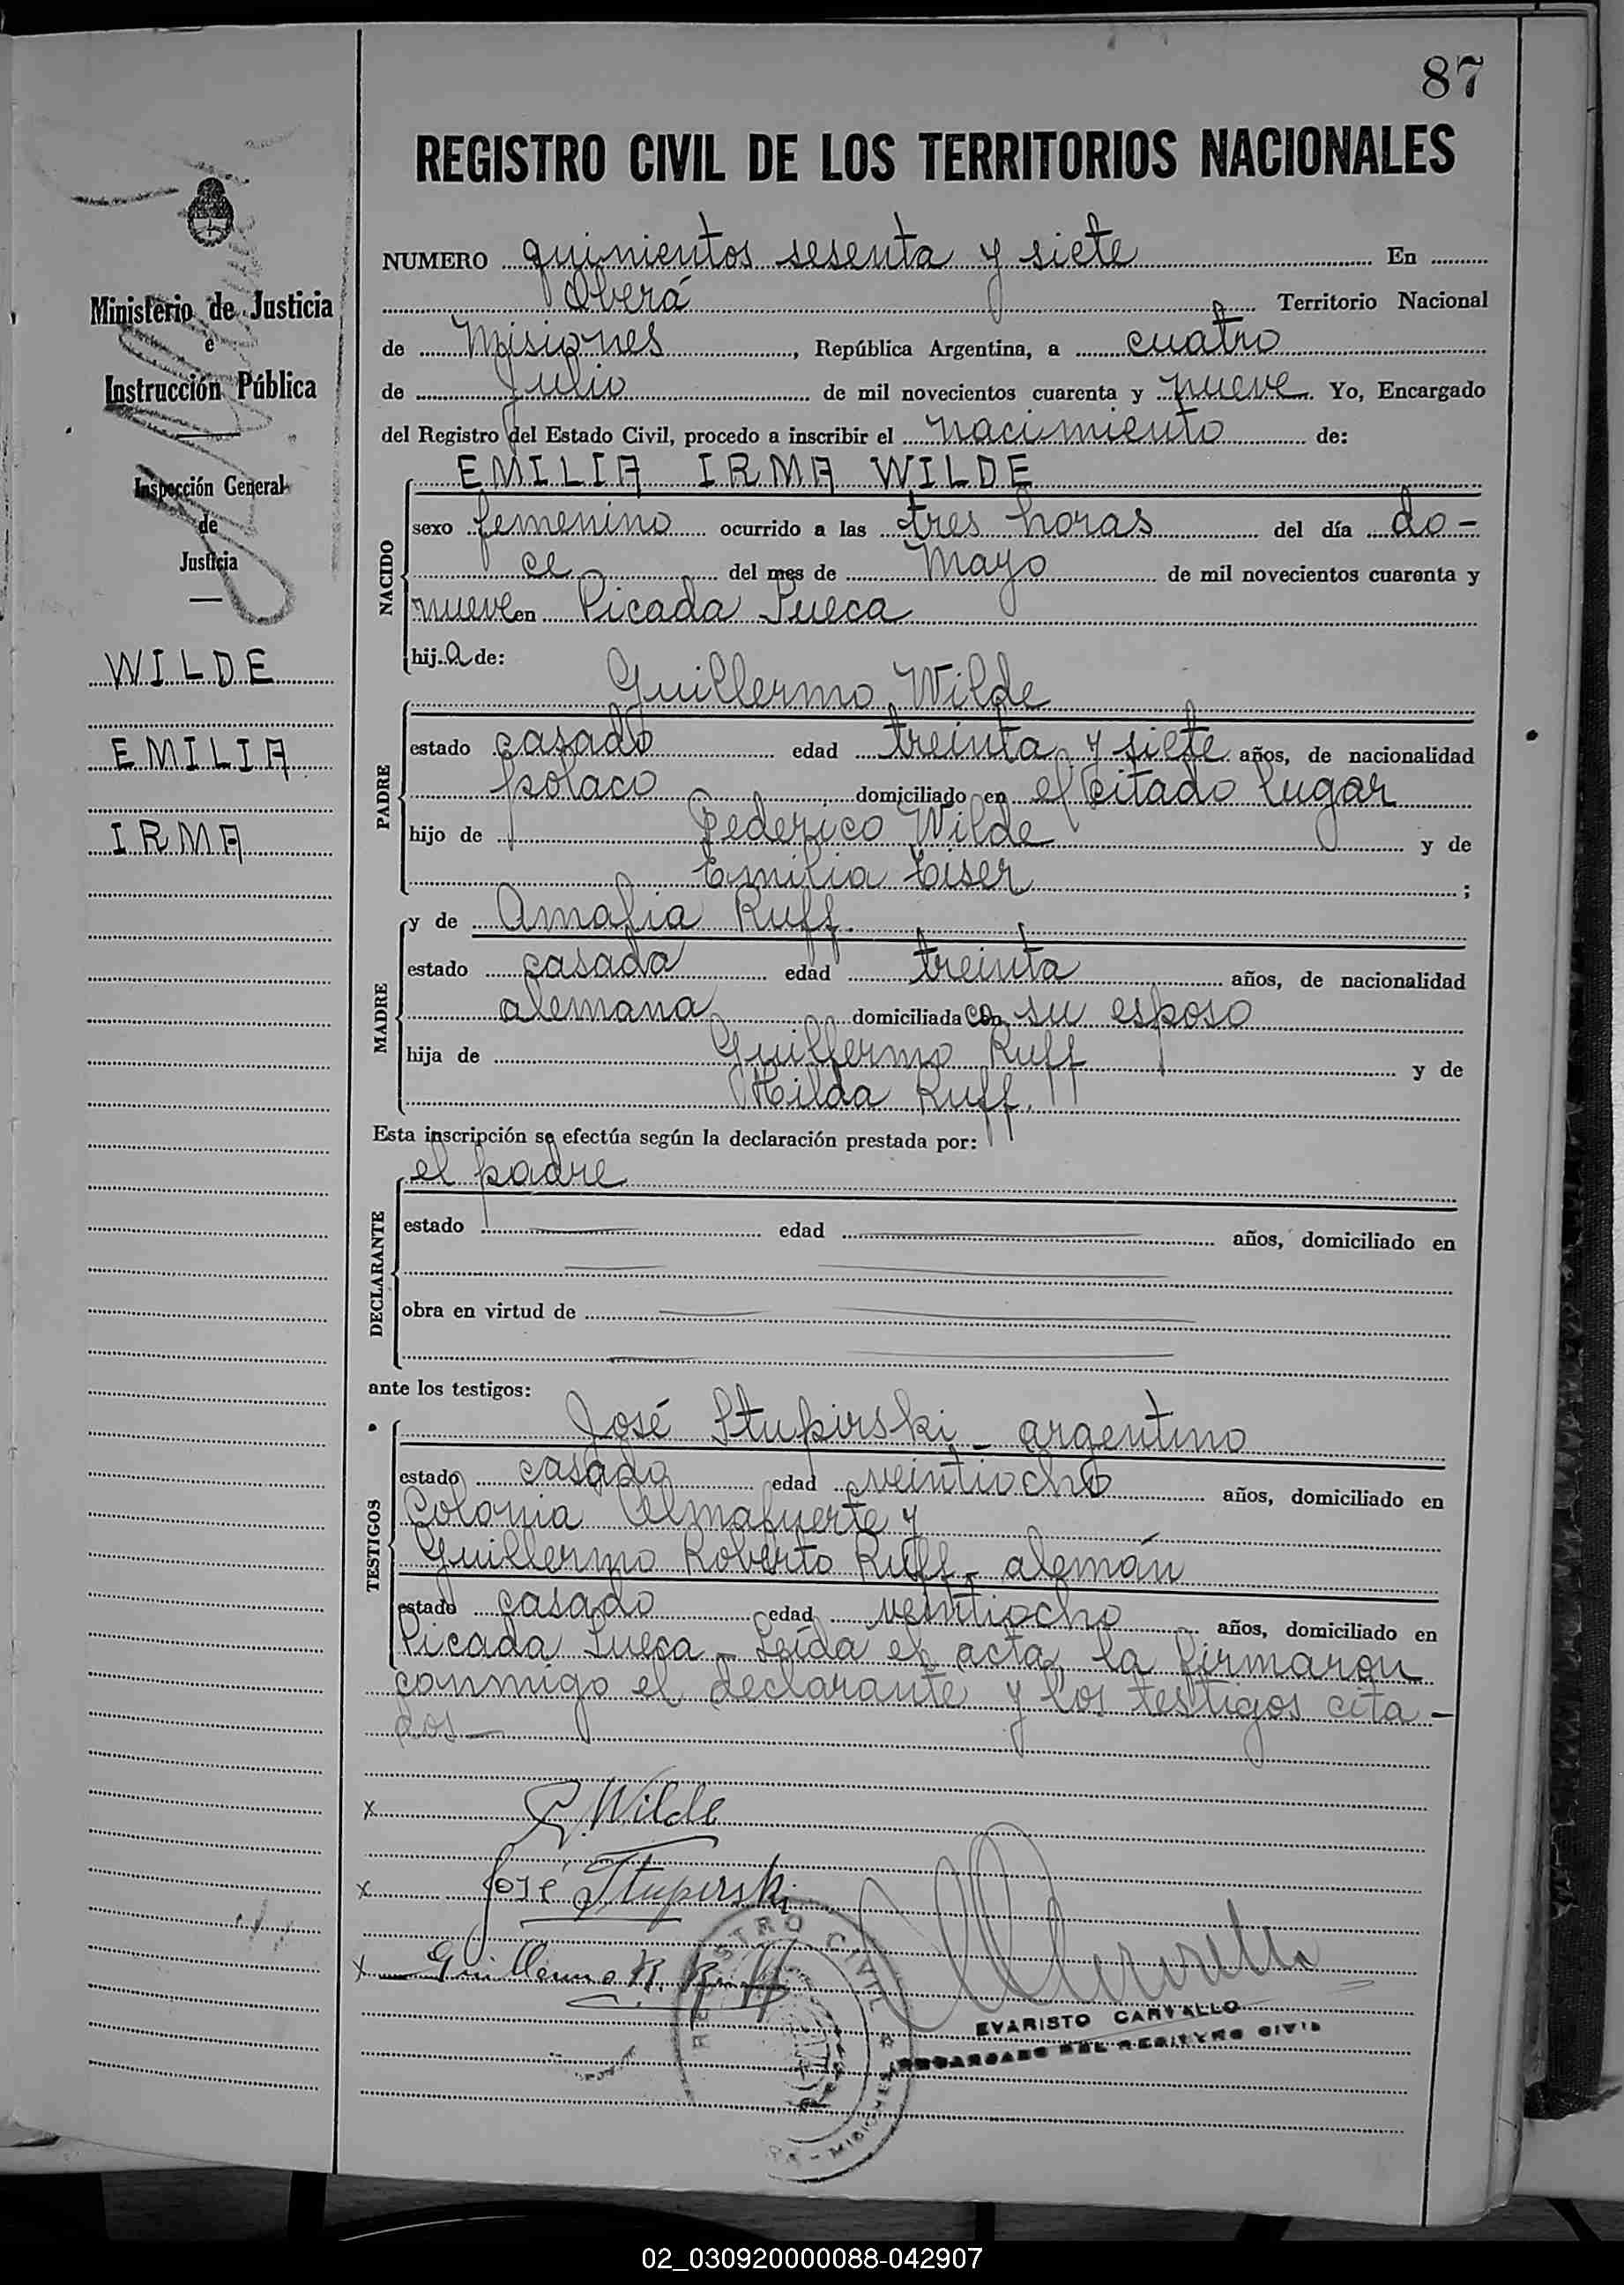 87
REGISTRO CIVIL DE LOS TERRITORIOS NACIONALES
Ministerio de Justicia
e
Instrucción Pública
Inspección General
de
Justicia
WILDE
EMILIA
IRMA
NUMERO quinientos sesenta y siete En
Oberá Territorio Nacional
de Misiones, República Argentina, a cuatro
de Julio de mil novecientos cuarenta y nueve. Yo, Encargado
del Registro del Estado Civil, procedo a inscribir el nacimiento de:
NACIDO
EMILIA IRMA WILDE
sexo femenino ocurrido a las tres horas del día do-
ce del mes de Mayo de mil novecientos cuarenta y
nueve en Picada Sueca
hija de:
PADRE
Guillermo Wilde
estado casado edad treinta y siete años, de nacionalidad
polaco domiciliado en el citado lugar
hijo de Federico Wilde y de
Emilia Eiser;
MADRE
y de Amalia Ruff.
estado casada edad treinta años, de nacionalidad
alemana domiciliada con su esposo
hija de Guillermo Ruff y de
Hilda Ruff.
Esta inscripción se efectúa según la declaración prestada por:
DECLARANTE
el padre
estado edad años, domiciliado en
obra en virtud de
ante los testigos:
TESTIGOS
José Stupirski - argentino
estado casado edad veintiocho años, domiciliado en
Colonia Almafuerte y
Guillermo Roberto Ruff - alemán
estado casado edad veintiocho años, domiciliado en
Picada Sueca - Leída el acta, la firmaron
conmigo el declarante y los testigos cita-
dos -
x G. Wilde
x José Stupirski
x Guillermo R. Ruff
REGISTRO CIVIL
MISIONES
EVARISTO CARVALLO
ENCARGADO DEL REGISTRO CIVIL
02_030920000088-042907